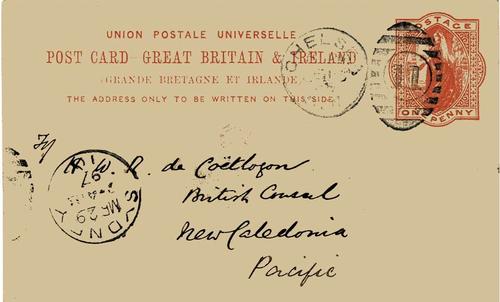 UNION POSTALE UNIVERSELLE
POST CARD - GREAT BRITAIN & IRELAND
(GRANDE BRETAGNE ET IRLANDE)
THE ADDRESS ONLY TO BE WRITTEN ON THIS SIDE
POSTAGE
ONE PENNY
CHELSEA
R. de Coëtlogon
British Consul
New Caledonia
Pacific
SYDNEY
MR 29
97